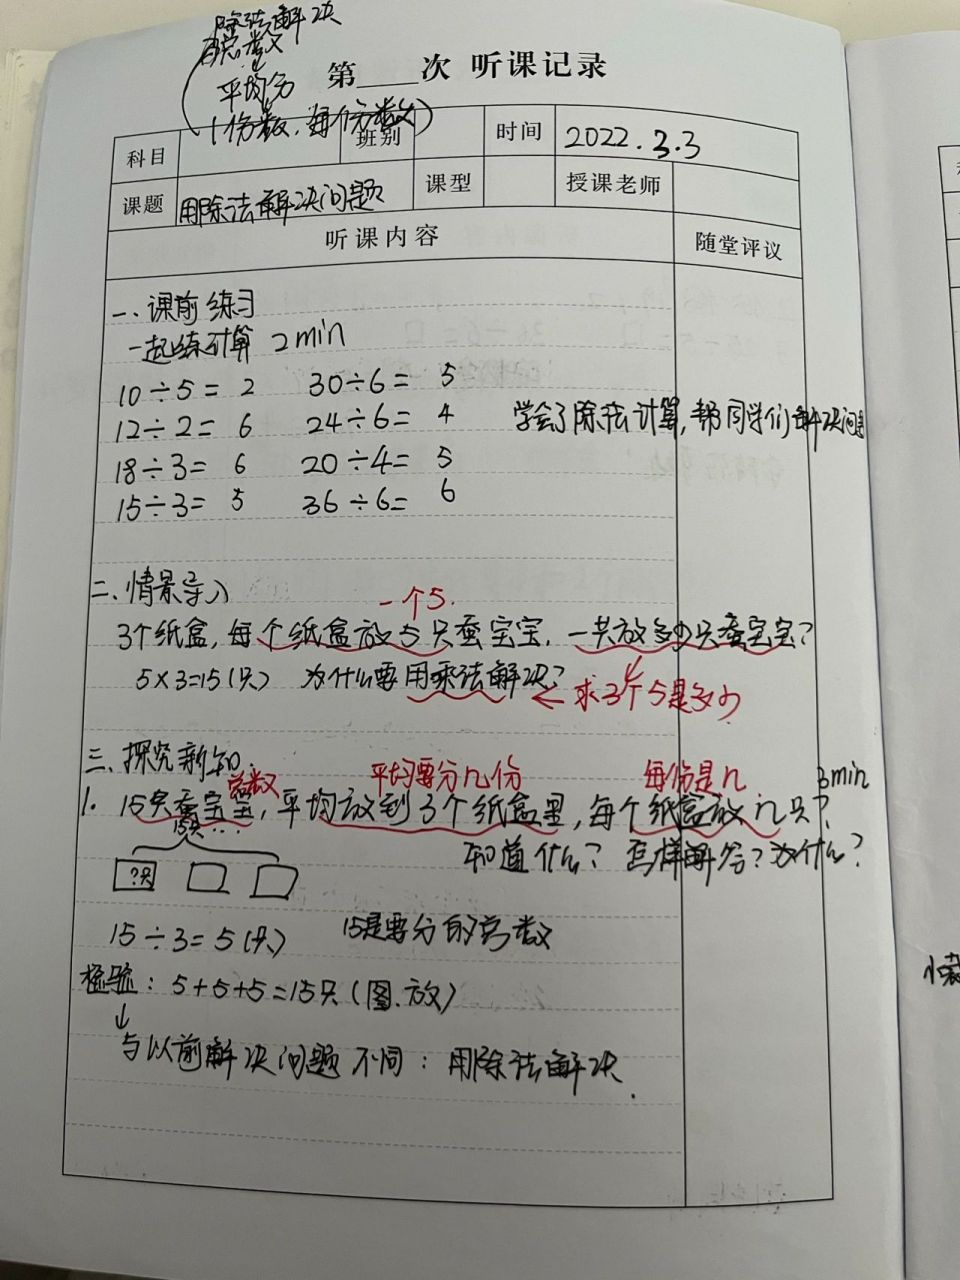 除法解决
总数
平均分
(份数,每份数)
第___次 听课记录
科目 班别 时间 2022.3.3
课题 用除法解决问题 课型 授课老师
听课内容 随堂评议
一、课前练习
一起练计算 2min
10÷5= 2 30÷6= 5
12÷2= 6 24÷6= 4 学会了除法计算,帮同学们解决问题
18÷3= 6 20÷4= 5
15÷3= 5 36÷6= 6
二、情景导入
一个5.
3个纸盒,每个纸盒放5只蚕宝宝,一共放多少只蚕宝宝?
5×3=15(只) 为什么要用乘法解决? ← 求3个5是多少
三、探究新知
总数 平均要分几份 每份是几 3min
1. 15只蚕宝宝,平均放到3个纸盒里,每个纸盒放几只?
15只… 知道什么?怎样解答?为什么?
?只
15÷3=5(只) 15是要分的总数
检验:5+5+5=15只(图、放)
↓
与以前解决问题不同:用除法解决.